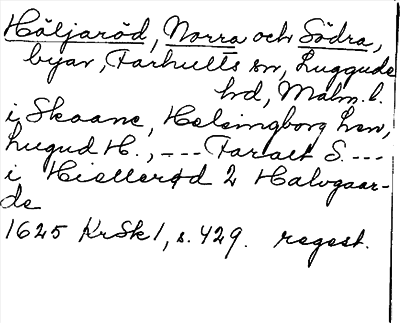 Häljaröd, Norra och Södra,
byar, Farhults sn, Luggude
hd, Malm. l.
i Skaane, Helsingborg Len,
Lugud H., --- Faralt S. ---
i Hiellerød 2 Halvgaar-
de
1625 KrSk 1, s. 429. regest.